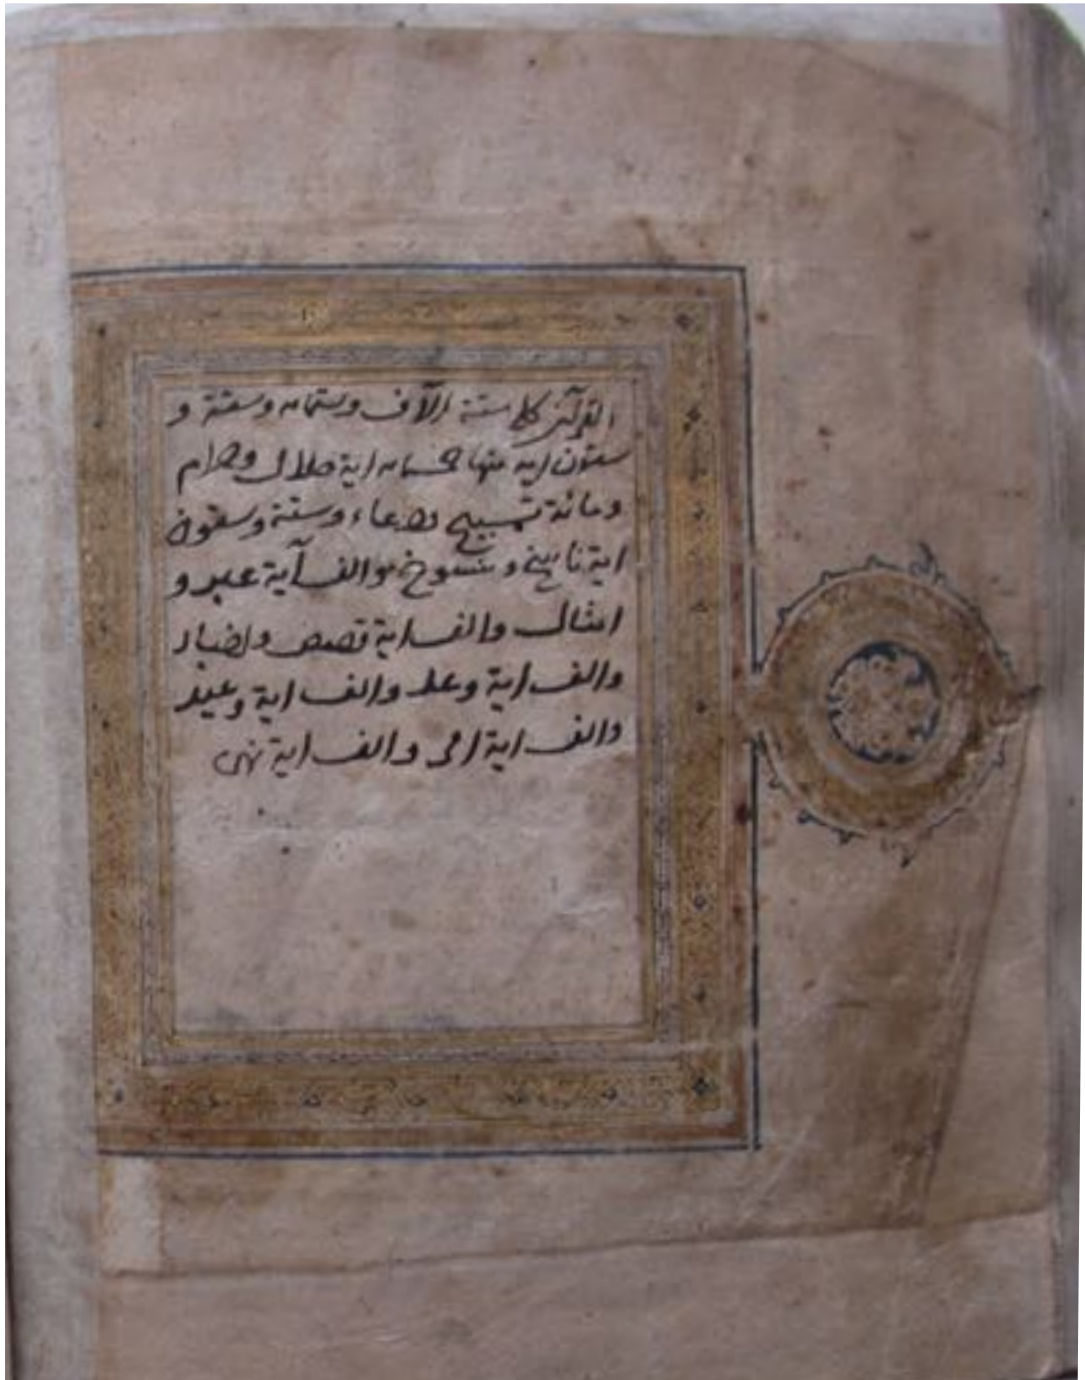 القرآن كله ستة الآف وستمائه وستة و
ستون ايه منها خمسمائه اية حلال وحرام
ومائة تسبيح ودعاء وستة وستون
اية ناسخ ومنسوخ والف آية عبر و
امثال والف اية قصص واخبار
والف اية وعد والف اية وعيد
والف اية امر والف اية نهى